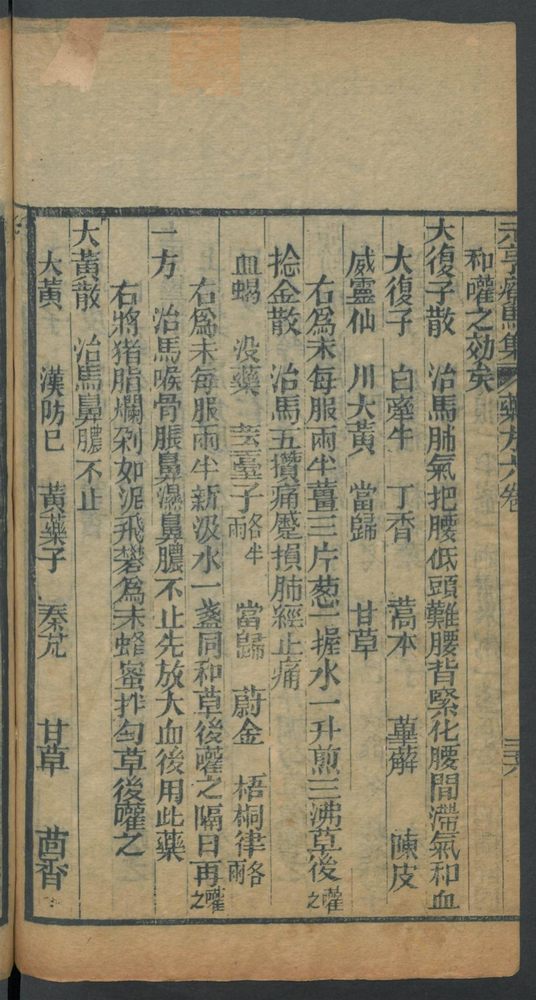 元亨療馬集 藥方六卷 三六
和嚾之効矣
大復子散 治馬肺氣把腰低頭難腰背緊化腰間滯氣和血
大復子 白牽牛 丁香 蒿本 萆薢 陳皮
威靈仙 川大黃 當歸 甘草
右爲末每服兩半薑三片葱一握水一升煎三沸草後嚾之
捻金散 治馬五攢痛蹙損肺經止痛
血蝎 没藥 芸薹子各兩半 當歸 蔚金 梧桐律各兩
右爲末每服兩半新汲水一盞同和草後嚾之隔日再嚾之
一方 治馬喉骨脹鼻濕鼻膿不止先放大血後用此藥
右將猪脂爛剁如泥飛礬爲末蜂蜜拌勻草後嚾之
大黃散 治馬鼻膿不止
大黃 漢防巳 黃藥子 秦艽 甘草 茴香